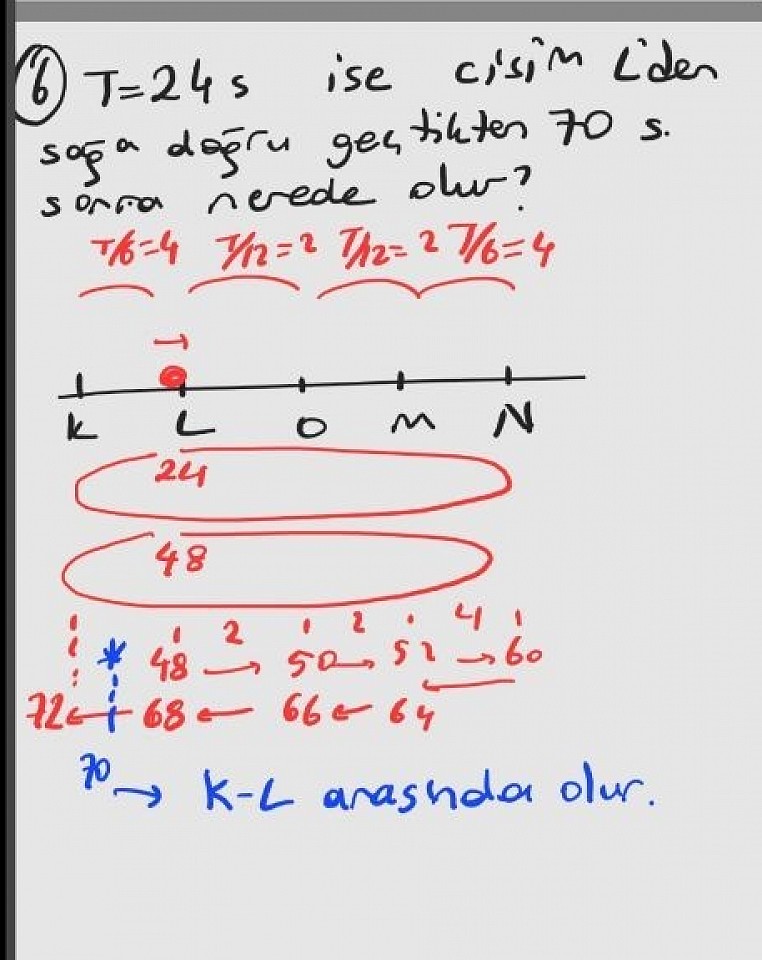 6) T=24 s ise cisim L'den
sağa doğru geçtikten 70 s.
sonra nerede olur?
T/6=4 T/12=2 T/12=2 T/6=4
K L O M N
24
48
2 2 4
48 → 50 → 52 → 60
72 ← 68 ← 66 ← 64
70 → K-L arasında olur.